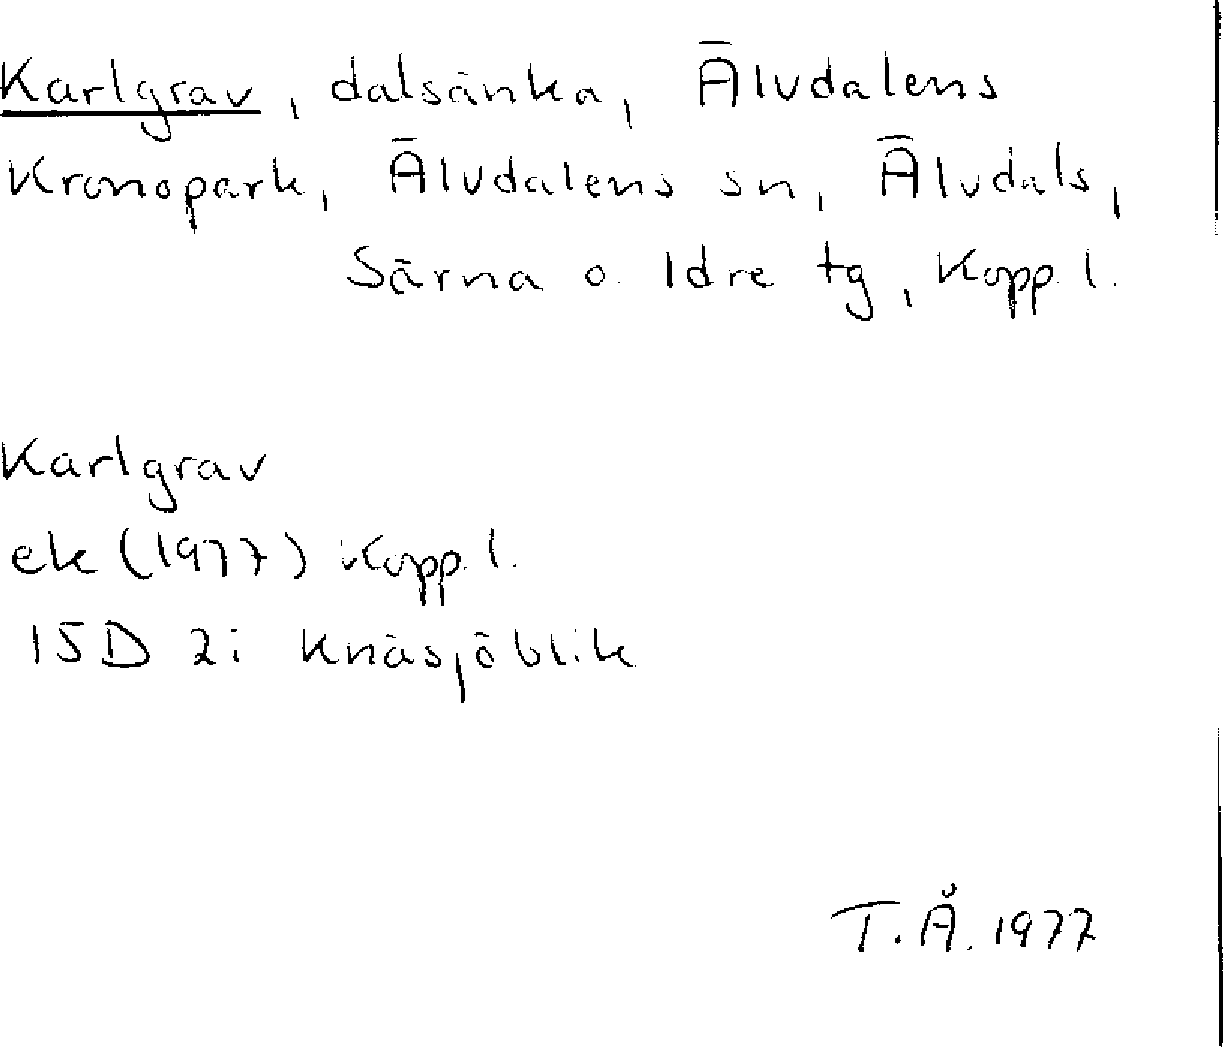 Karlgrav, dalsänka, Älvdalens
Kronopark, Älvdalens sn, Älvdals,
Särna o. Idre tg, Kopp. l.
Karlgrav
ek (1977) Kopp. l.
15D 2i Knäsjöblik
T.Å. 1977